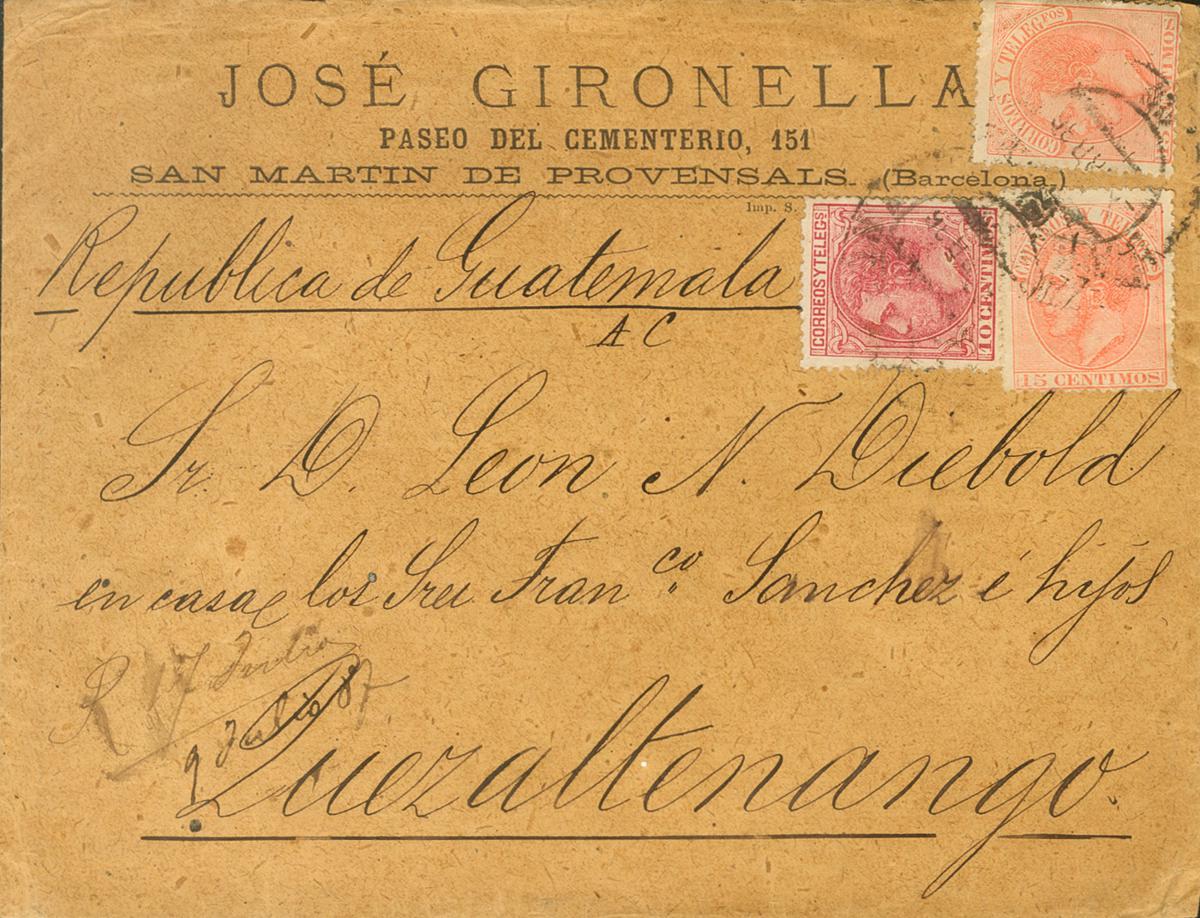 JOSÉ GIRONELLA
PASEO DEL CEMENTERIO, 151
SAN MARTIN DE PROVENSALS. (Barcelona.)
Imp. S.
CORREOS Y TELEGFOS
CORREOS Y TELEGS
10 CENTIMOS
15 CENTIMOS
Republica de Guatemala
A C
Sr. D. Leon N. Diebold
en casa los Sres Franco. Sanchez é hijos
R 17 Julio
9 Julio 87
Quezaltenango.